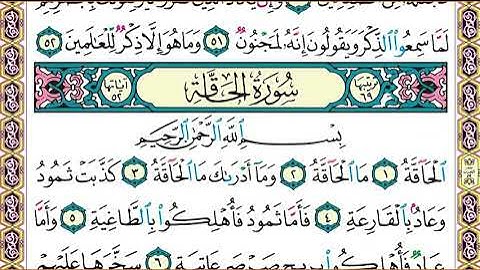 لَمَّا سَمِعُوا۟ ٱلذِّكْرَ وَيَقُولُونَ إِنَّهُۥ لَمَجْنُونٌ ٥١ وَمَا هُوَ إِلَّا ذِكْرٌ لِّلْعَالَمِينَ ٥٢
ترتيبها ٦٩ سُورَةُ الْحَاقَّة آياتها ٥٢
بِسْمِ ٱللَّهِ ٱلرَّحْمَٰنِ ٱلرَّحِيمِ
ٱلْحَاقَّةُ ١ مَا ٱلْحَاقَّةُ ٢ وَمَآ أَدْرَىٰكَ مَا ٱلْحَاقَّةُ ٣ كَذَّبَتْ ثَمُودُ
وَعَادٌۢ بِٱلْقَارِعَةِ ٤ فَأَمَّا ثَمُودُ فَأُهْلِكُوا۟ بِٱلطَّاغِيَةِ ٥ وَأَمَّا
عَادٌ فَأُهْلِكُوا۟ بِرِيحٍ صَرْصَرٍ عَاتِيَةٍ ٦ سَخَّرَهَا عَلَيْهِمْ